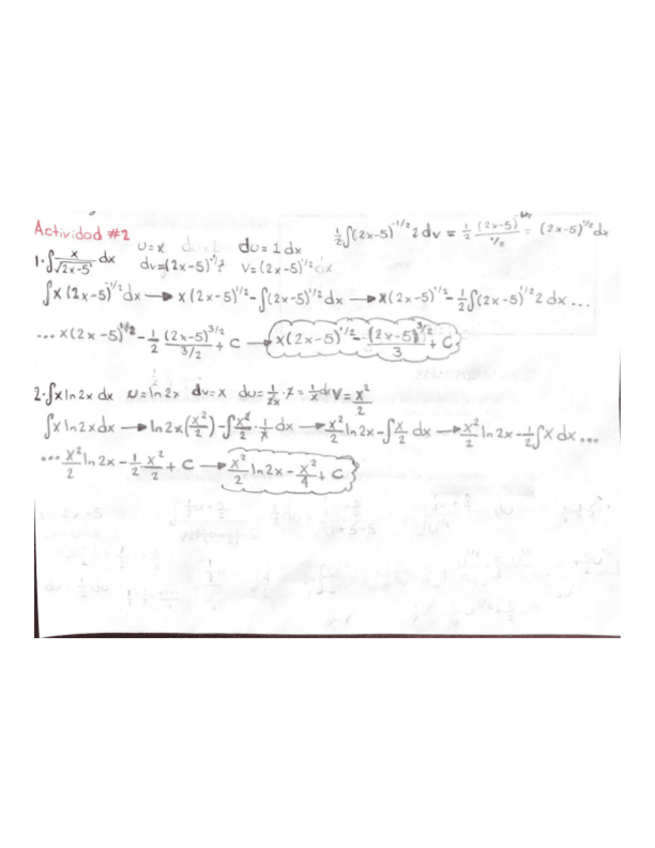 Actividad #2
1·∫ x/√2x-5 dx u=x du=1 dx
dv=(2x-5)^-1/2 v=(2x-5)^1/2 dx
½∫(2x-5)^-1/2 2 dv = ½ (2x-5)^1/2 / ½ = (2x-5)^1/2 dx
∫x(2x-5)^-1/2 dx → x(2x-5)^1/2 - ∫(2x-5)^1/2 dx → x(2x-5)^1/2 - ½∫(2x-5)^1/2 2 dx ...
... x(2x-5)^1/2 - ½ (2x-5)^3/2 / 3/2 + C → x(2x-5)^1/2 - (2x-5)^3/2 / 3 + C
2·∫x ln2x dx u=ln2x dv=x du=1/2x · 2 = 1/x dx v=x²/2
∫x ln2x dx → ln2x(x²/2) - ∫x²/2 · 1/x dx → x²/2 ln2x - ∫x/2 dx → x²/2 ln2x - ½∫x dx ...
... x²/2 ln2x - ½ · x²/2 + C → x²/2 ln2x - x²/4 + C